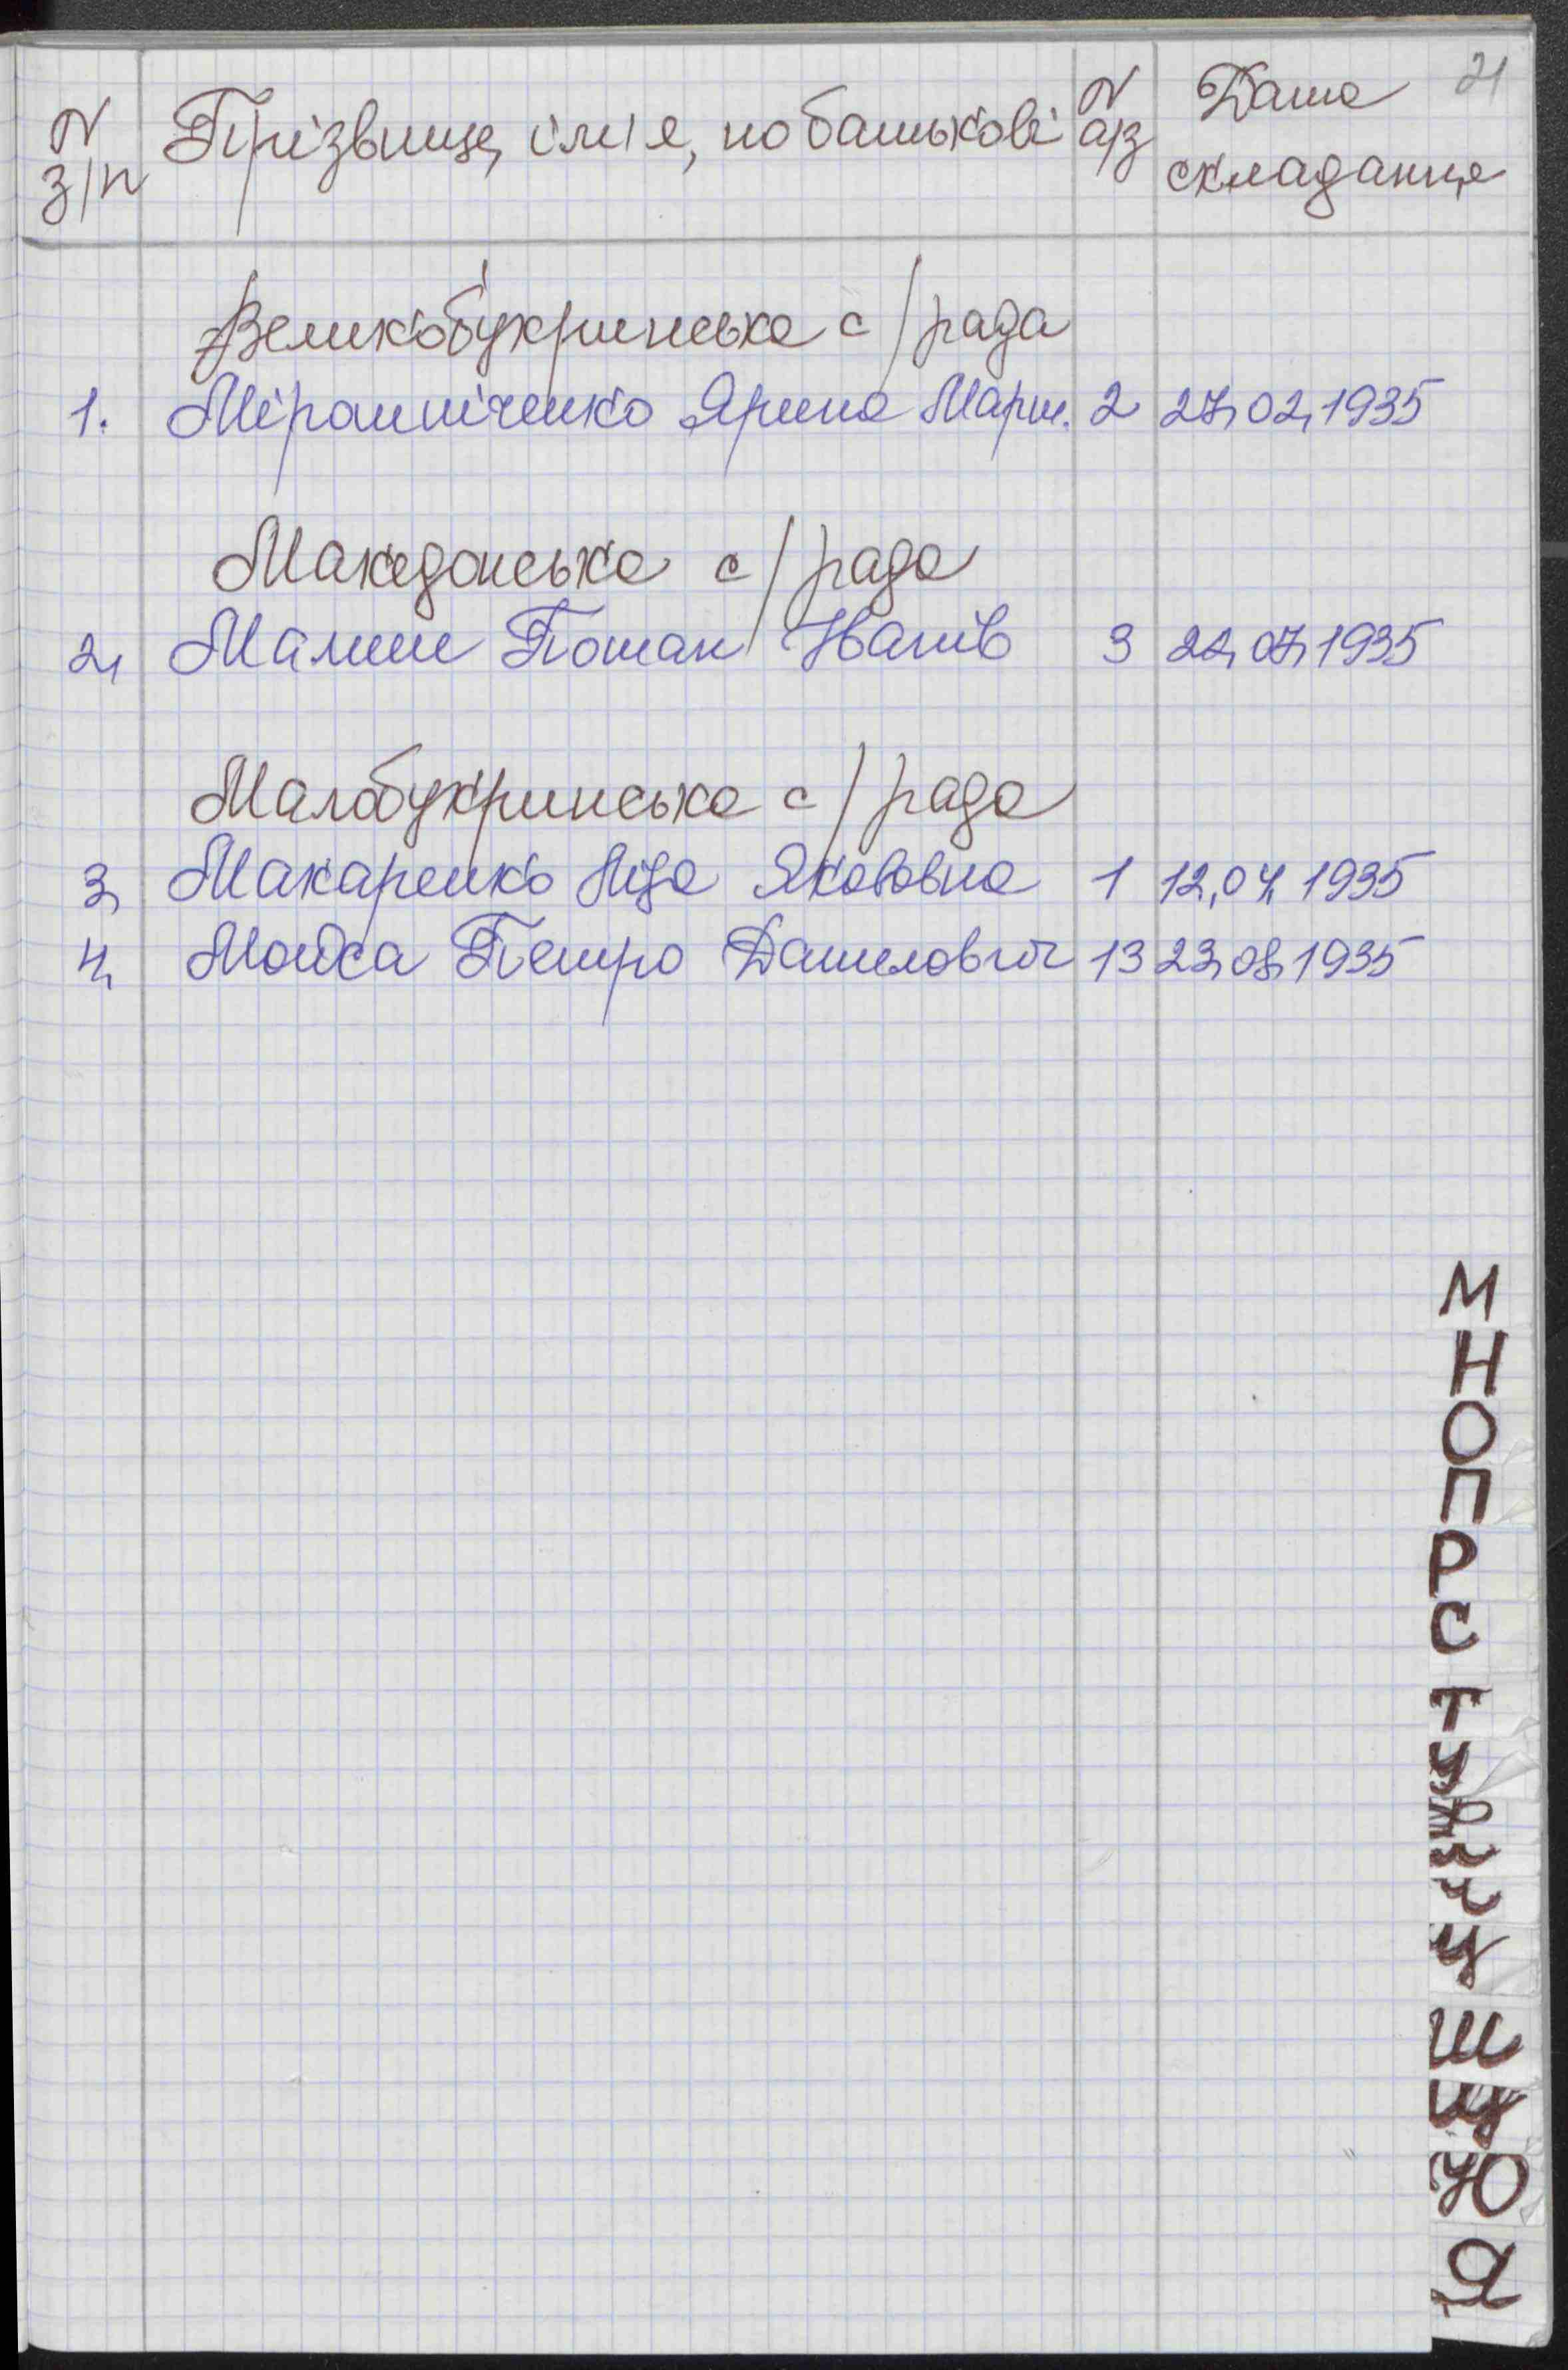 21
N з/п Прізвище, ім'я, по батькові N а/з Дата складання
Великобукринська с/рада
1. Мірошніченко Ярина Март. 2 27.02.1935
Македонська с/рада
2. Малиш Потап Іванів 3 22.07.1935
Малобукринська с/рада
3. Макаренко Ліда Якововна 1 12.04.1935
4. Мойса Петро Данилович 13 23.08.1935
М
Н
О
П
Р
С
Т
У
Ф
Х
Ч
Ц
Ш
Щ
Ю
Я